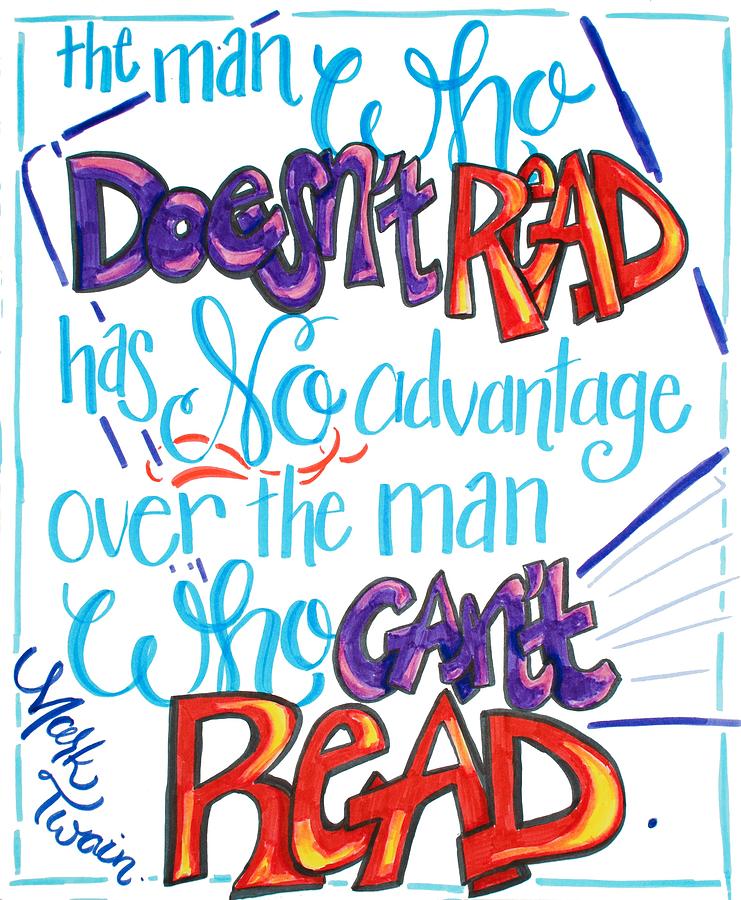 the man Who
Doesn't ReAD
has No advantage
over the man
Who CAn't
ReAD
Mark Twain.